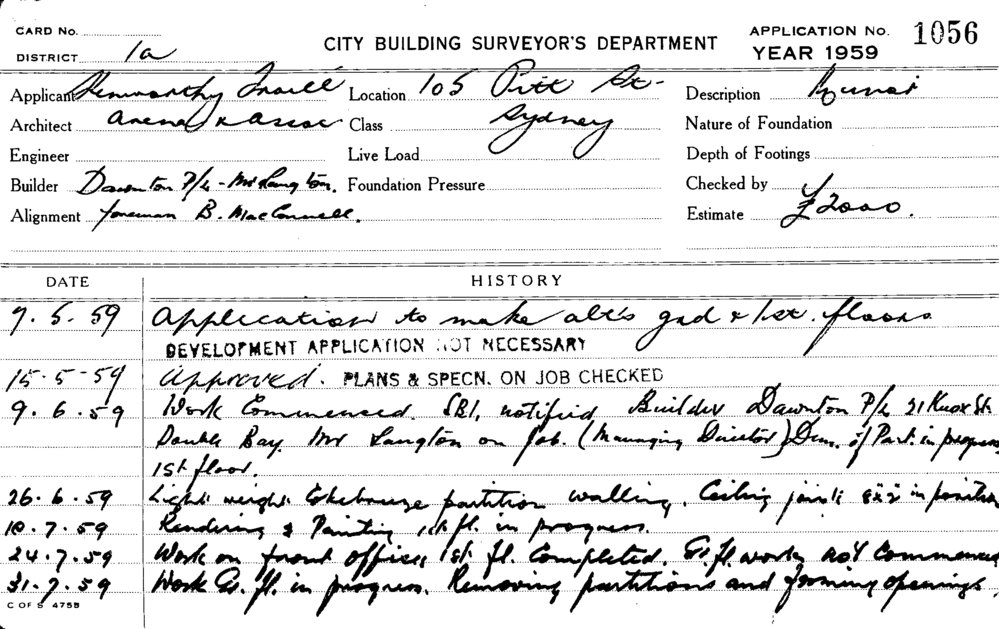 CARD No.
DISTRICT 1a
CITY BUILDING SURVEYOR'S DEPARTMENT
APPLICATION No. 1056
YEAR 1959
Applicant Kenworthy Location 105 Pitt St. Description
Architect & Assoc Class Sydney Nature of Foundation
Engineer Live Load Depth of Footings
Builder Dawnton P/L - Mr Langton. Foundation Pressure Checked by
Alignment foreman B. MacConnell. Estimate £2000.
DATE HISTORY
7.5.59 Application to make alts gnd & 1st. floors
DEVELOPMENT APPLICATION NOT NECESSARY
15-5-59 Approved. PLANS & SPECN. ON JOB CHECKED
9.6.59 Work Commenced. SBI. notified Builder Dawnton P/L 21 Knox St.
Double Bay. Mr Langton on job. (Managing Director) Dem. of Part. in progress
1st floor.
26.6.59 Light weight partition walling. Ceiling joists in position
10.7.59 Rendering & Painting 1st fl. in progress.
24.7.59 Work on front offices 1st. fl. Completed. Gr. fl. works not Commenced
31.7.59 Work Gr. fl. in progress. Removing partitions and forming openings.
C OF S 4755